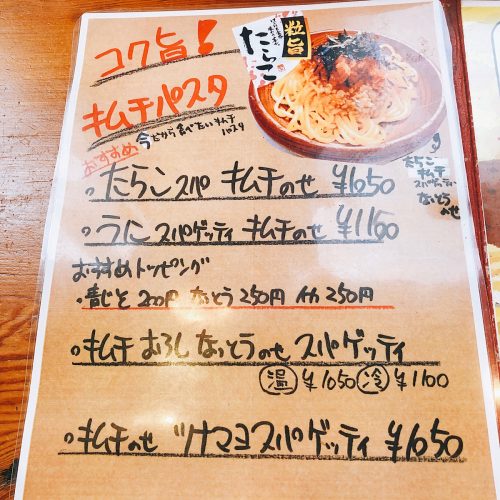 コク旨!
粒旨
たらこ
キムチパスタ
今だから食べたいキムチ
パスタ
おすすめ
たらこスパ キムチのせ ¥1050
うにスパゲッティ キムチのせ ¥1100
おすすめトッピング
・青じそ 200円 なっとう 250円 イカ 250円
キムチ おろし なっとうのせ スパゲッティ
温 ¥1050 冷 ¥1100
キムチのせ ツナマヨスパゲッティ ¥1050
たらこ
キムチ
スパゲッティー
なっとう
のせ